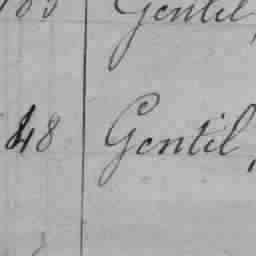 Gentil,
48 Gentil,